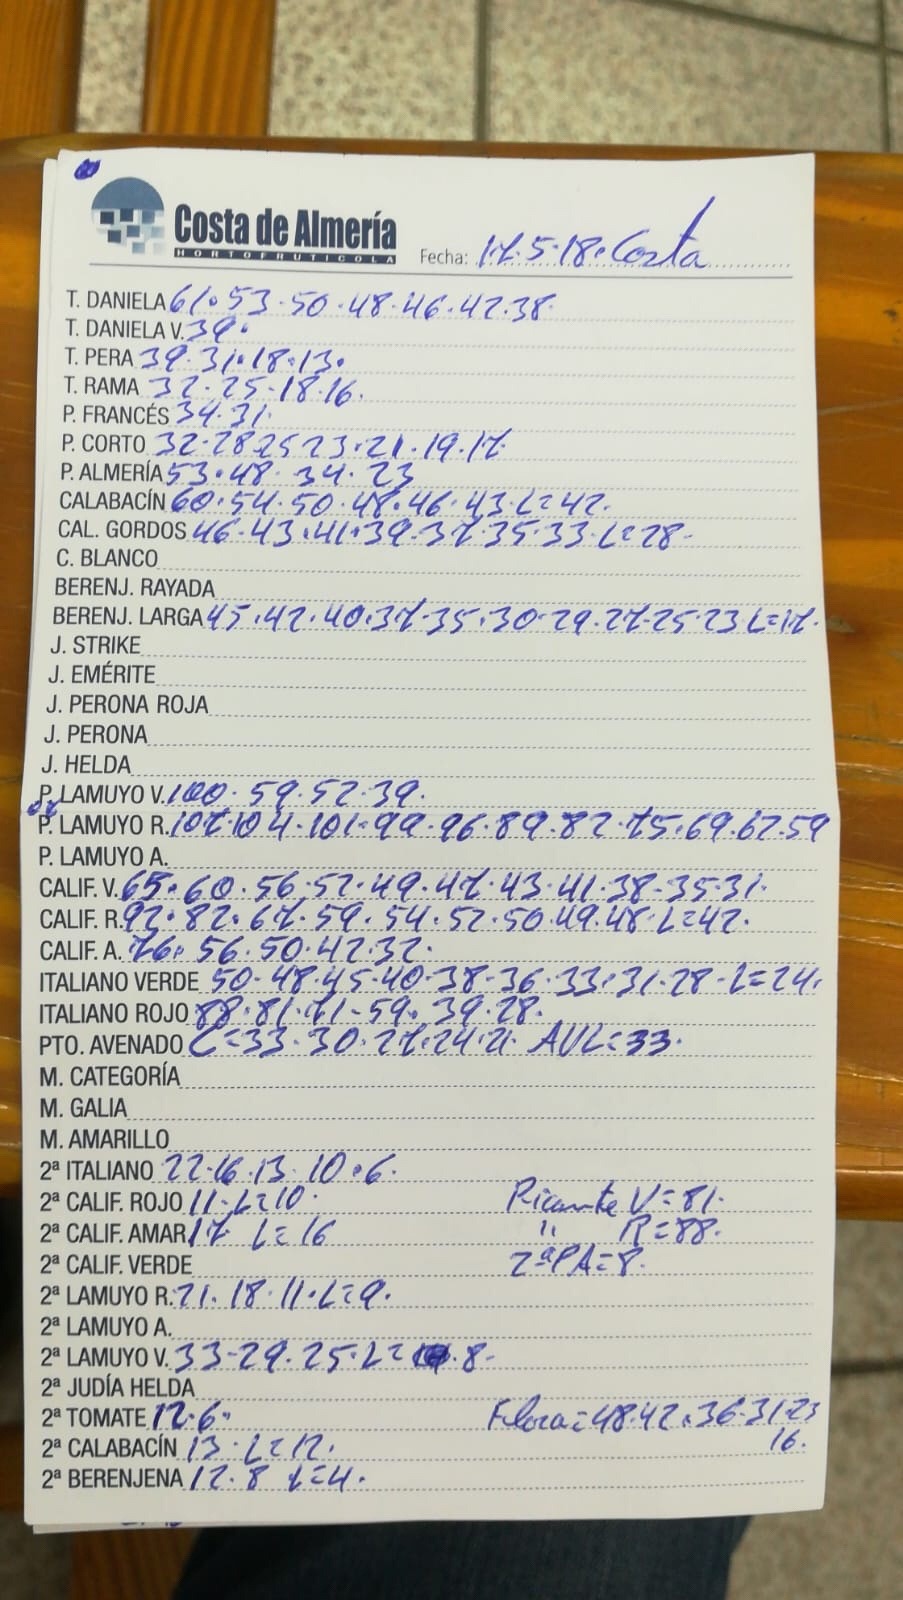 Costa de Almería
HORTOFRUTICOLA
Fecha: 17.5.18. Costa
T. DANIELA 61.53.50.48.46.42.38.
T. DANIELA V. 39.
T. PERA 39.31.18.13.
T. RAMA 32.25.18.16.
P. FRANCÉS 34.31.
P. CORTO 32.28 25 23.21.19.17.
P. ALMERÍA 53.48. 34. 23
CALABACÍN 60.54.50.48.46.43.L=42.
CAL. GORDOS 46.43.41.39.37.35.33.L=28.
C. BLANCO
BERENJ. RAYADA
BERENJ. LARGA 45.42.40.37.35.30.29.27.25.23 L=17.
J. STRIKE
J. EMÉRITE
J. PERONA ROJA
J. PERONA
J. HELDA
P. LAMUYO V. 100. 59.52.39.
P. LAMUYO R. 107.104.101.99.96.89.82.75.69.62.59
P. LAMUYO A.
CALIF. V. 65.60.56.52.49.47.43.41.38.35.31.
CALIF. R. 92.82.67.59.54.52.50.49.48.L=42.
CALIF. A. 76. 56.50.42.32.
ITALIANO VERDE 50.48.45.40.38.36.33.31.28.L=24.
ITALIANO ROJO 88.81.71.59.39.28.
PTO. AVENADO C=33.30.27.24.21. AVL=33.
M. CATEGORÍA
M. GALIA
M. AMARILLO
2ª ITALIANO 22.16.13.10.6.
2ª CALIF. ROJO 11.L=10. Picante V=81.
2ª CALIF. AMAR 17 L=16 " R=88.
2ª CALIF. VERDE 2ªPA=8.
2ª LAMUYO R. 21.18.11.L=9.
2ª LAMUYO A.
2ª LAMUYO V. 33.29.25.L= 8.
2ª JUDÍA HELDA
2ª TOMATE 12.6. Flora=48.42.36.31.23
16.
2ª CALABACÍN 13.L=12.
2ª BERENJENA 12.8 L=4.